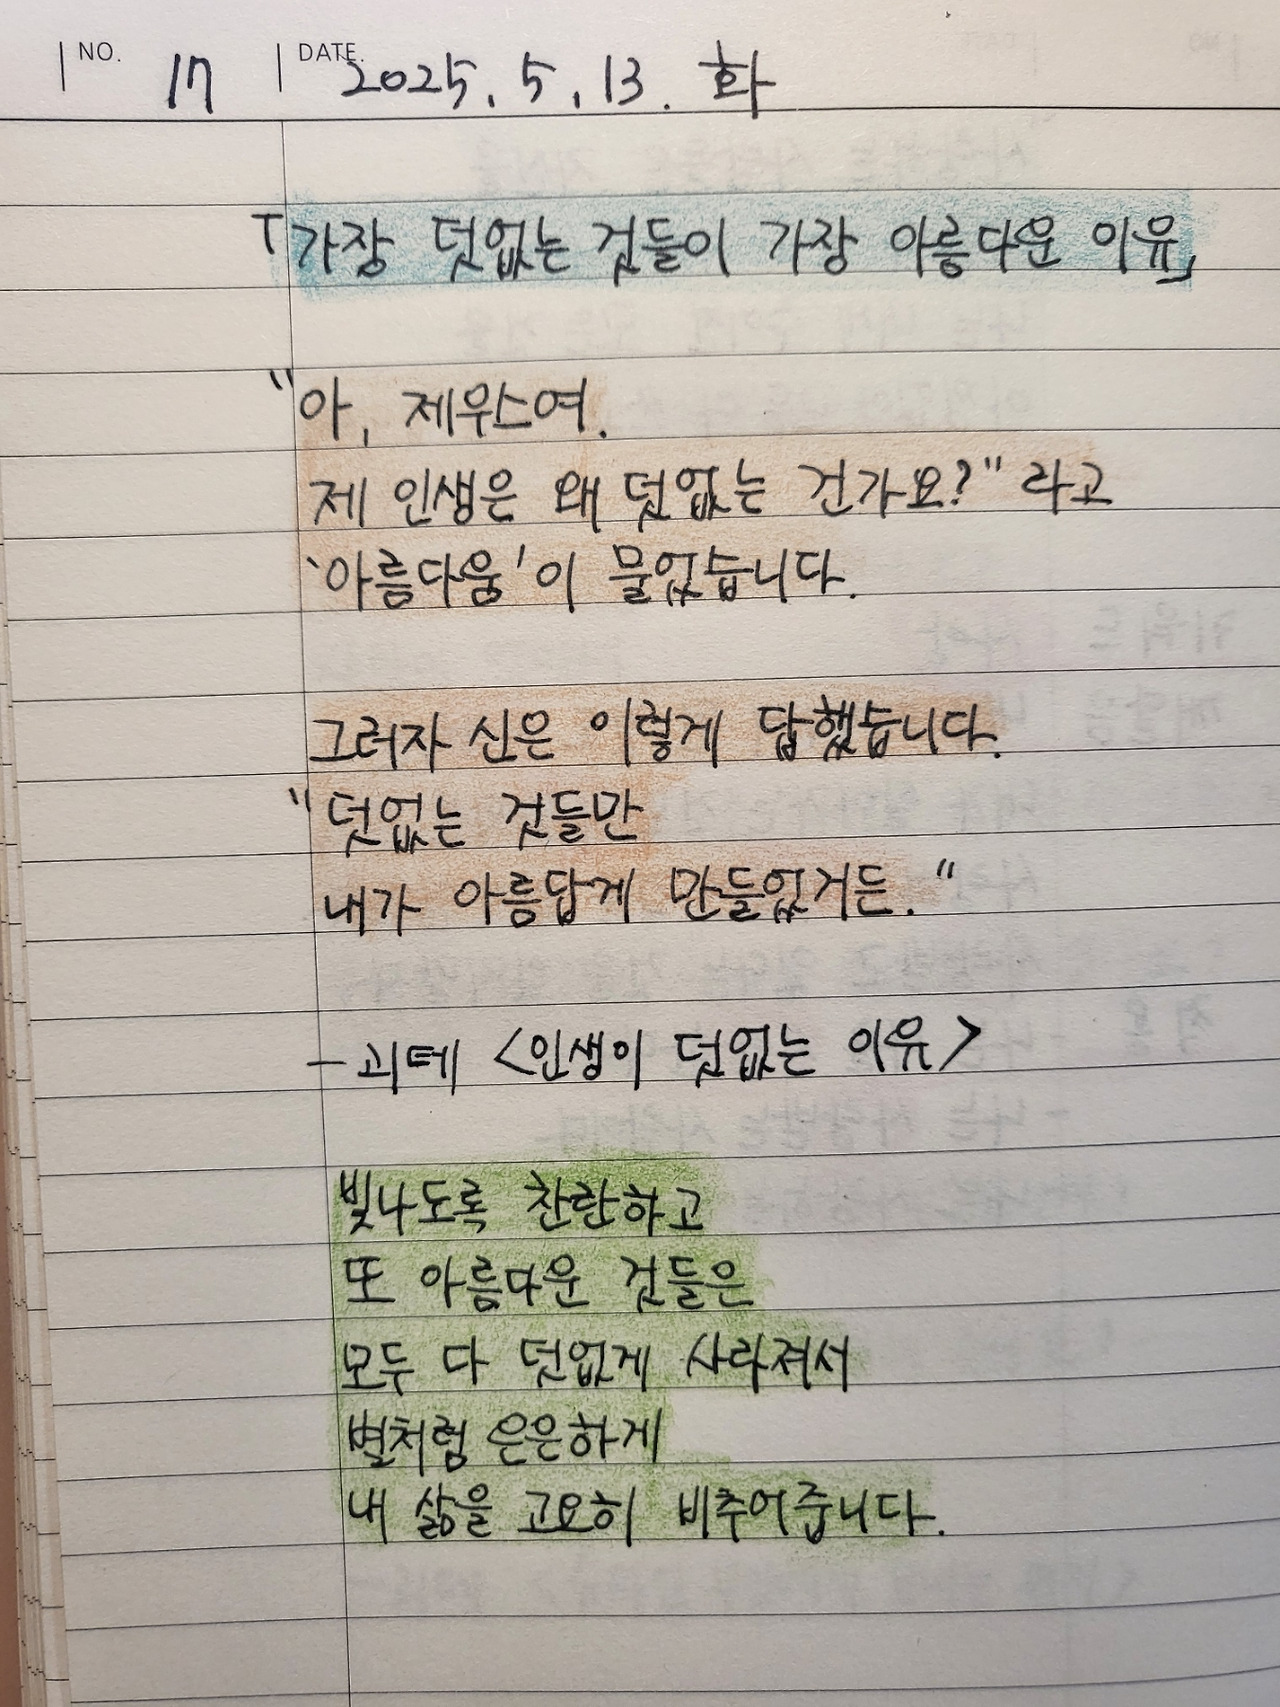 NO. 17 DATE. 2025. 5. 13. 화
「가장 덧없는 것들이 가장 아름다운 이유」
"아, 제우스여.
제 인생은 왜 덧없는 건가요?" 라고
'아름다움'이 물었습니다.
그러자 신은 이렇게 답했습니다.
"덧없는 것들만
내가 아름답게 만들었거든."
- 괴테 <인생이 덧없는 이유>
빛나도록 찬란하고
또 아름다운 것들은
모두 다 덧없게 사라져서
별처럼 은은하게
내 삶을 고요히 비추어줍니다.